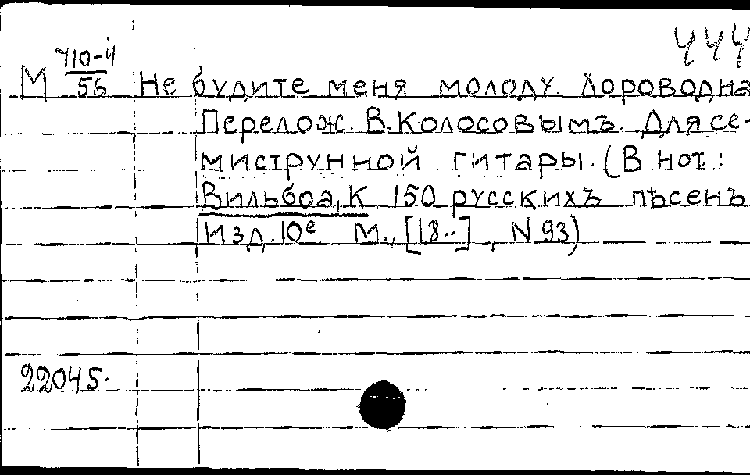 444
М 710-4/56 Не будите меня молоду. Хороводна
Перелож. В. Колосовымъ. Для се-
миструнной гитары. (В нот.:
Вильбоа, К 150 русскихъ пѣсенъ
Изд. 10е М., [18..], N 93)
22045.